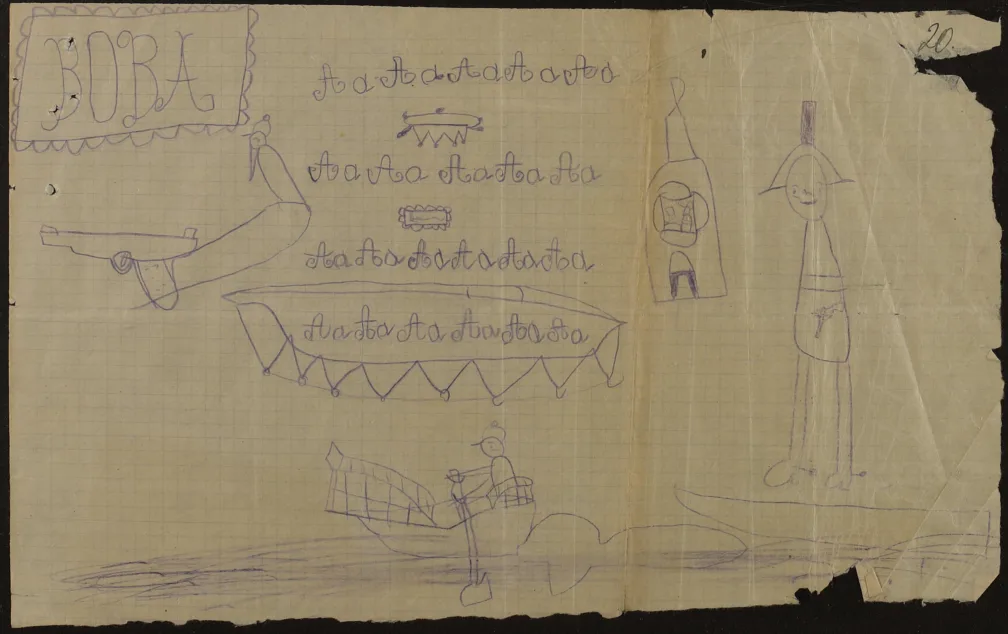 20.
ВОВА
Аа Аа Аа Аа Аа
Аа Аа Аа Аа Аа
Аа Аа Аа Аа Аа Аа
Аа Аа Аа Аа Аа Аа